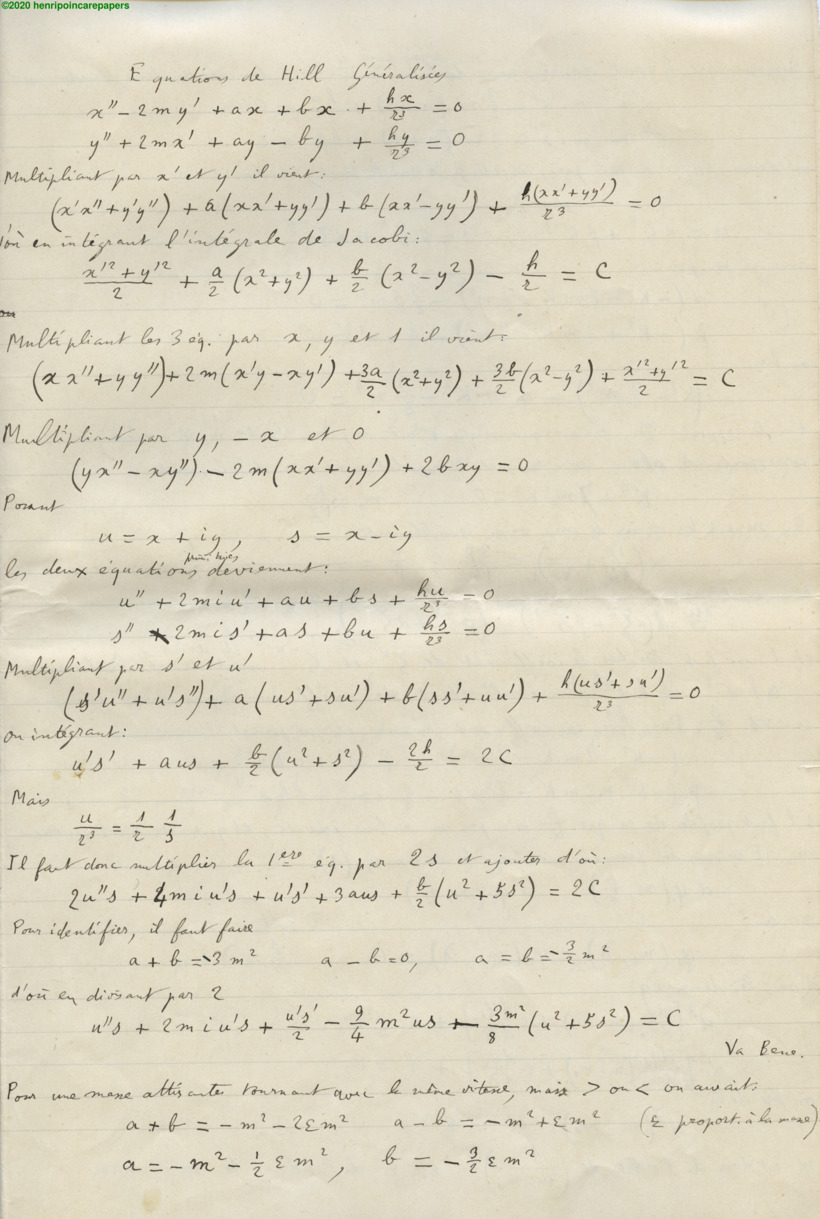 ©2020 henripoincarepapers
Equations de Hill Généralisées
x'' - 2my' + ax + bx + hx/r³ = 0
y'' + 2mx' + ay - by + hy/r³ = 0
Multipliant par x' et y' il vient:
(x'x'' + y'y'') + a(xx' + yy') + b(xx' - yy') + h(xx' + yy')/r³ = 0
d'où en intégrant l'intégrale de Jacobi:
(x'² + y'²)/2 + a/2 (x² + y²) + b/2 (x² - y²) - h/r = C
Multipliant les 3 éq. par x, y et 1 il vient:
(xx'' + yy'') + 2m(x'y - xy') + 3a/2 (x² + y²) + 3b/2 (x² - y²) + (x'² + y'²)/2 = C
Multipliant par y, -x et 0
(yx'' - xy'') - 2m(xx' + yy') + 2bxy = 0
Posant
u = x + iy, s = x - iy
les deux équations primitives deviennent:
u'' + 2miu' + au + bs + hu/r³ = 0
s'' - 2mis' + as + bu + hs/r³ = 0
Multipliant par s' et u'
(s'u'' + u's'') + a(us' + su') + b(ss' + uu') + h(us' + su')/r³ = 0
ou intégrant:
u's' + aus + b/2 (u² + s²) - 2h/r = 2C
Mais
u/r³ = 1/r 1/s
Il faut donc multiplier la 1ère éq. par 2s et ajouter d'où:
2u''s + 4miu's + u's' + 3aus + b/2 (u² + 5s²) = 2C
Pour identifier, il faut faire
a + b = -3m² a - b = 0, a = b = -3/2 m²
d'où en divisant par 2
u''s + 2miu's + u's'/2 - 9/4 m²us - 3m²/8 (u² + 5s²) = C
Va Bene.
Pour une masse attirante tournant avec la même vitesse, mais > ou < on aurait:
a + b = -m² - 2εm² a - b = -m² + εm² (ε proport. à la masse)
a = -m² - 1/2 εm², b = -3/2 εm²